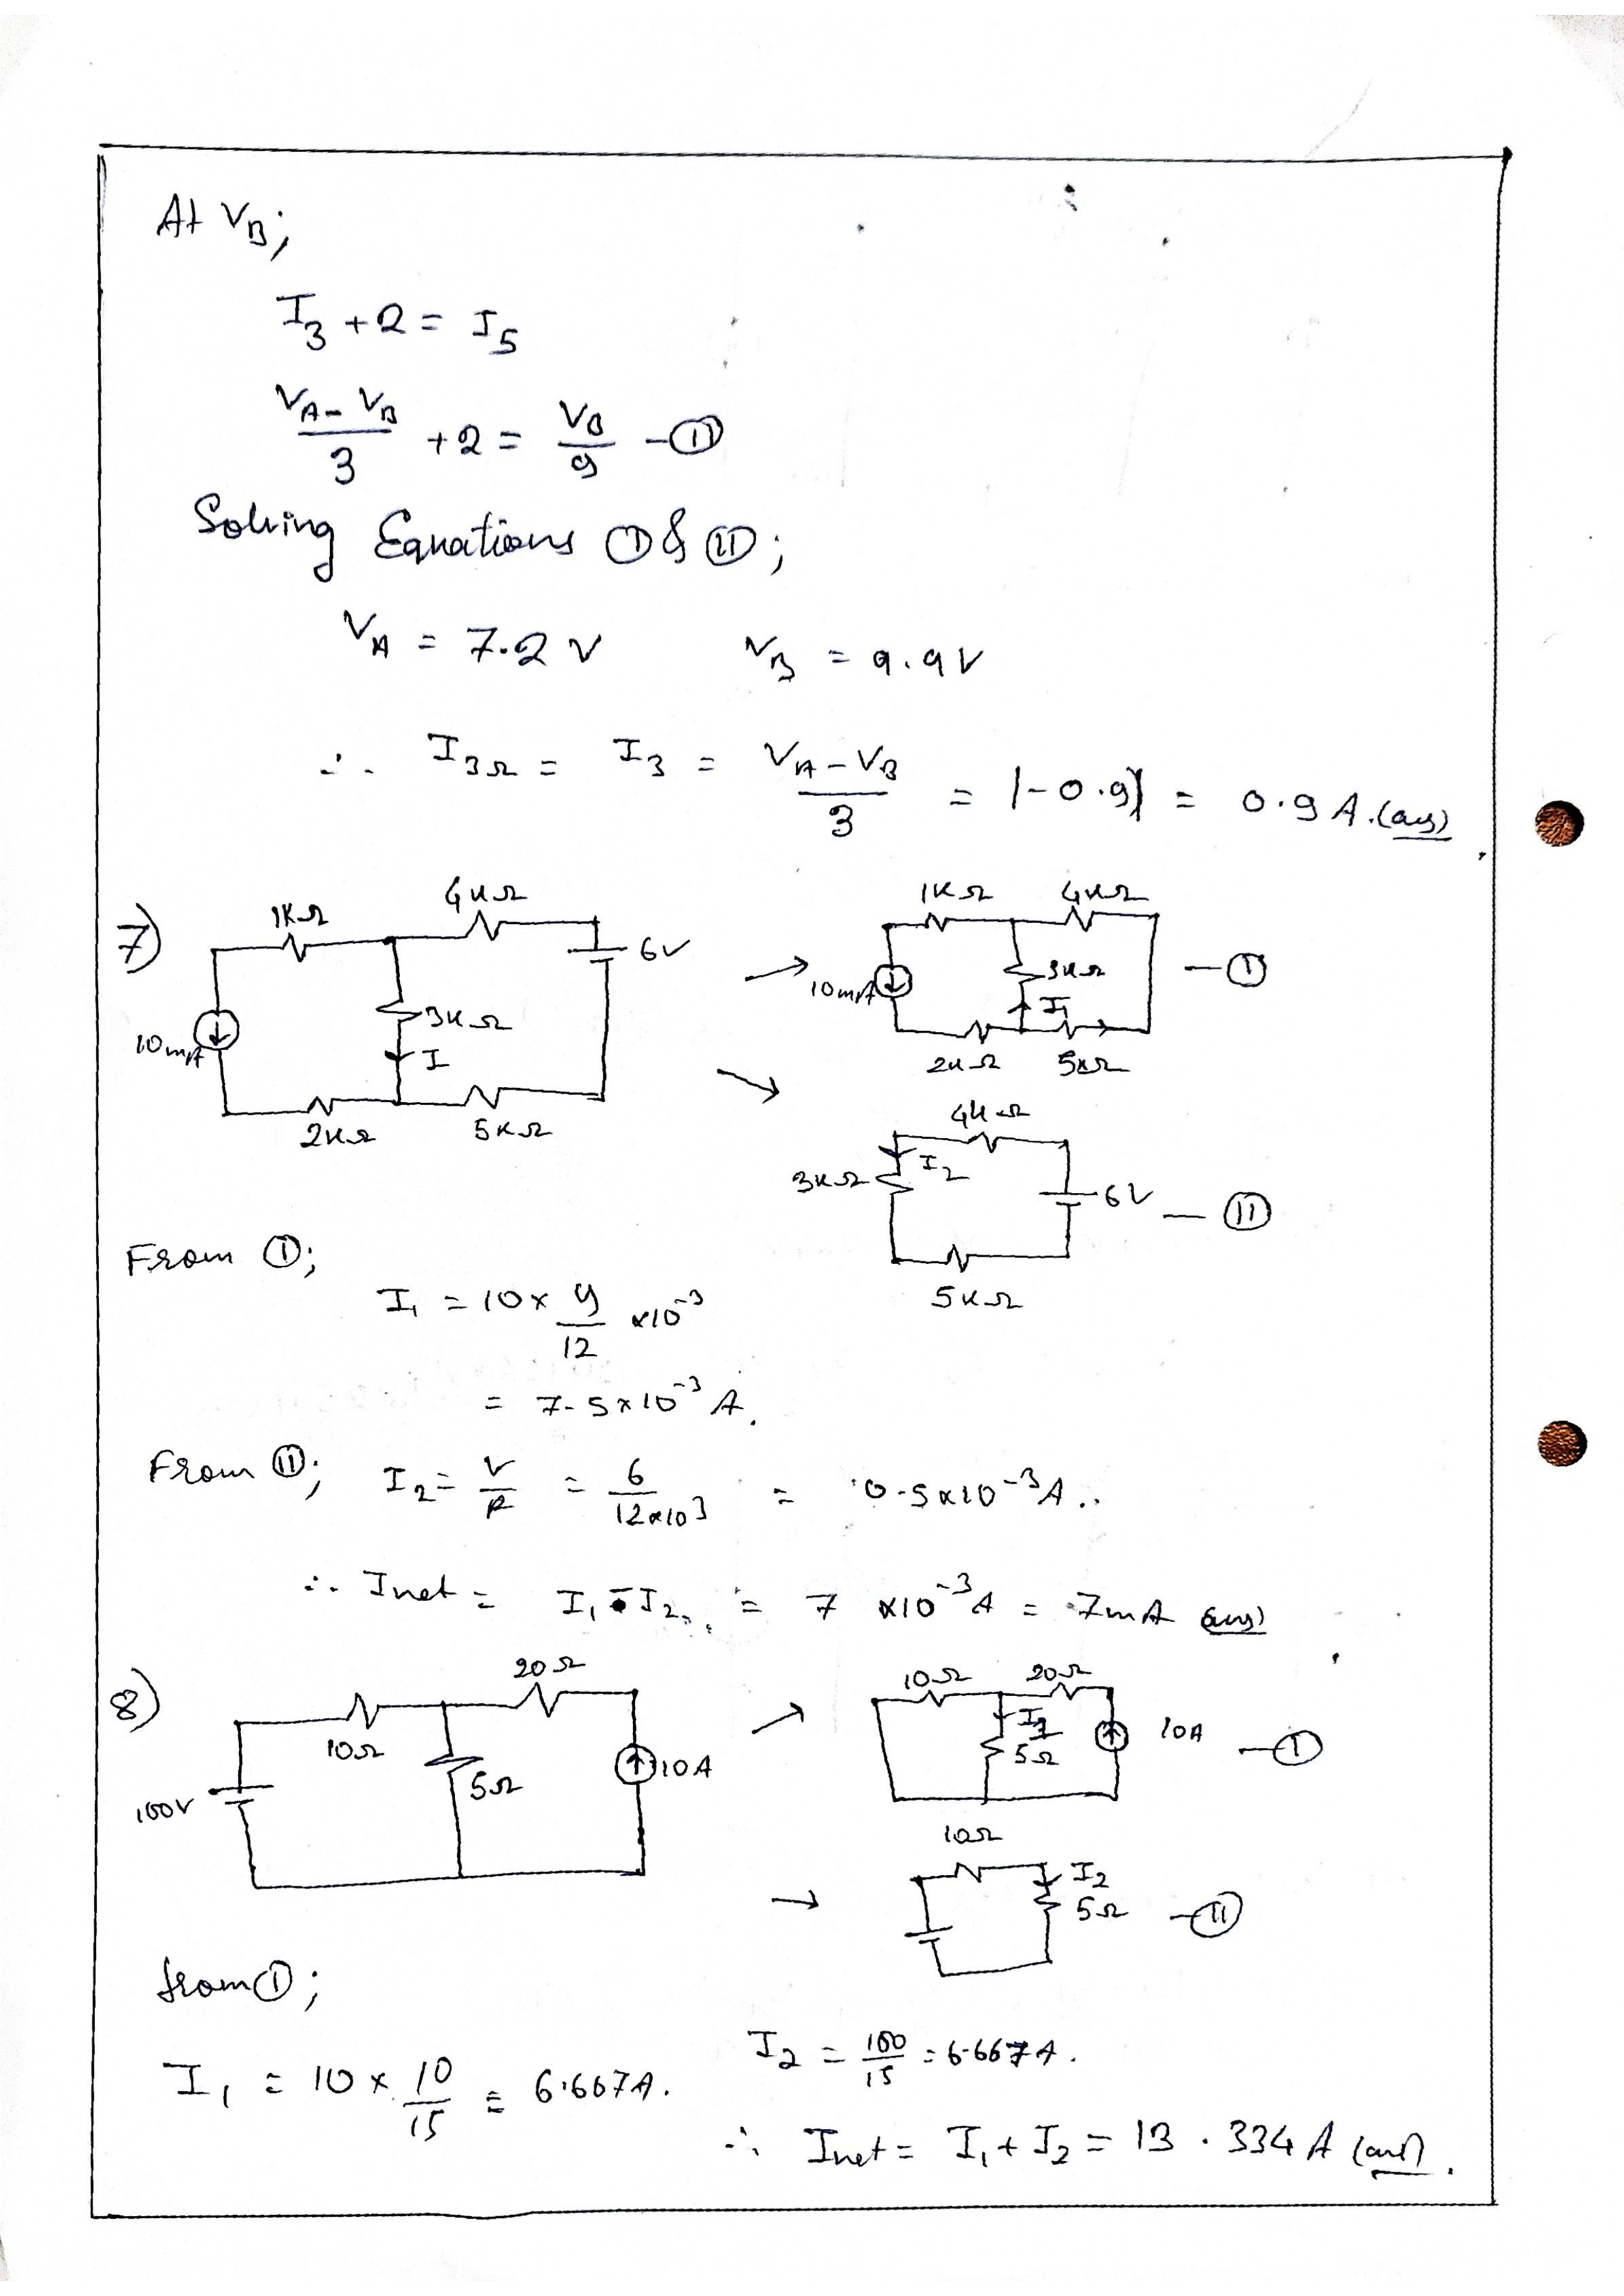 At V_B;
I_3 + 2 = I_5
(V_A - V_B)/3 + 2 = V_B/9 - (II)
Solving Equations (I) & (II);
V_A = 7.2 V    V_B = 9.9V
∴ I_3Ω = I_3 = (V_A - V_B)/3 = |-0.9| = 0.9 A. (ans)
7)
1KΩ 4KΩ 6V
10mA 3KΩ I
2KΩ 5KΩ
→ 1KΩ 4KΩ
10mA 3KΩ - (I)
I_1
2KΩ 5KΩ
→ 4KΩ
3KΩ I_2 6V - (II)
5KΩ
From (I);
I_1 = 10 × 9/12 × 10^-3
= 7.5 × 10^-3 A.
From (II); I_2 = V/R = 6/(12×10^3) = 0.5×10^-3 A..
∴ Inet = I_1 - I_2 = 7 × 10^-3 A = 7mA (ans)
8)
20Ω
10Ω
100V 5Ω 10A
→ 10Ω 20Ω
I_1 5Ω 10A - (I)
→ 10Ω
I_2
5Ω - (II)
from (I);
I_1 = 10 × 10/15 = 6.667A.    I_2 = 100/15 = 6.667A.
∴ Inet = I_1 + I_2 = 13.334 A (ans).